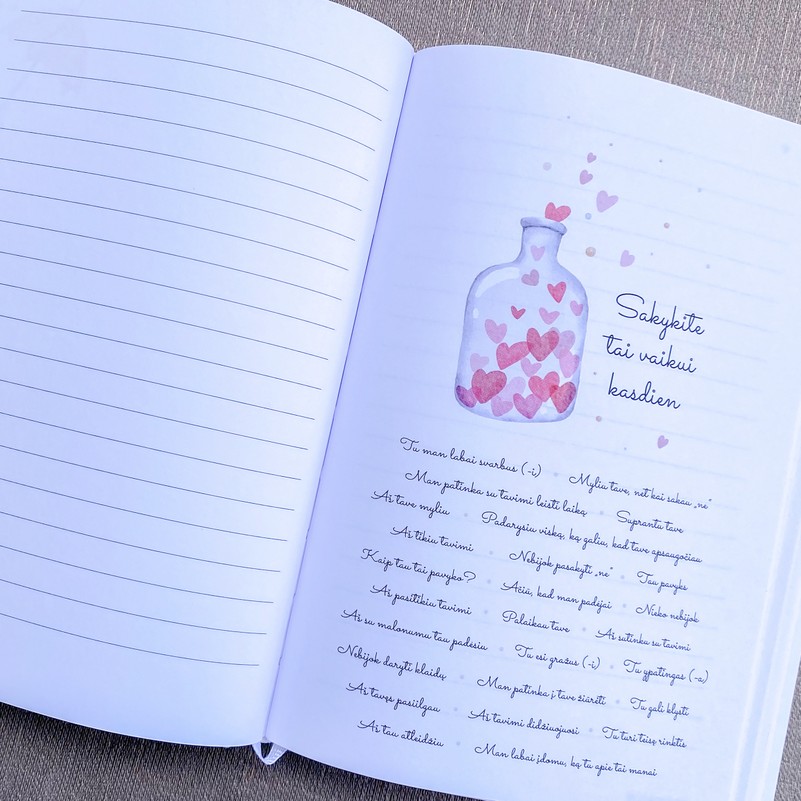 Sakykite
tai vaikui
kasdien
Tu man labai svarbus (-i) • Myliu tave, net kai sakau „ne“
Man patinka su tavimi leisti laiką • Suprantu tave
Aš tave myliu • Padarysiu viską, ką galiu, kad tave apsaugočiau
Aš tikiu tavimi • Nebijok pasakyti „ne“ • Tau pavyks
Kaip tau tai pavyko? • Ačiū, kad man padėjai • Nieko nebijok
Aš pasitikiu tavimi • Palaikau tave • Aš sutinku su tavimi
Aš su malonumu tau padėsiu • Tu esi gražus (-i) • Tu ypatingas (-a)
Nebijok daryti klaidų • Man patinka į tave žiūrėti • Tu gali klysti
Aš tavęs pasiilgau • Aš tavimi didžiuojuosi • Tu turi teisę rinktis
Aš tau atleidžiu • Man labai įdomu, ką tu apie tai manai